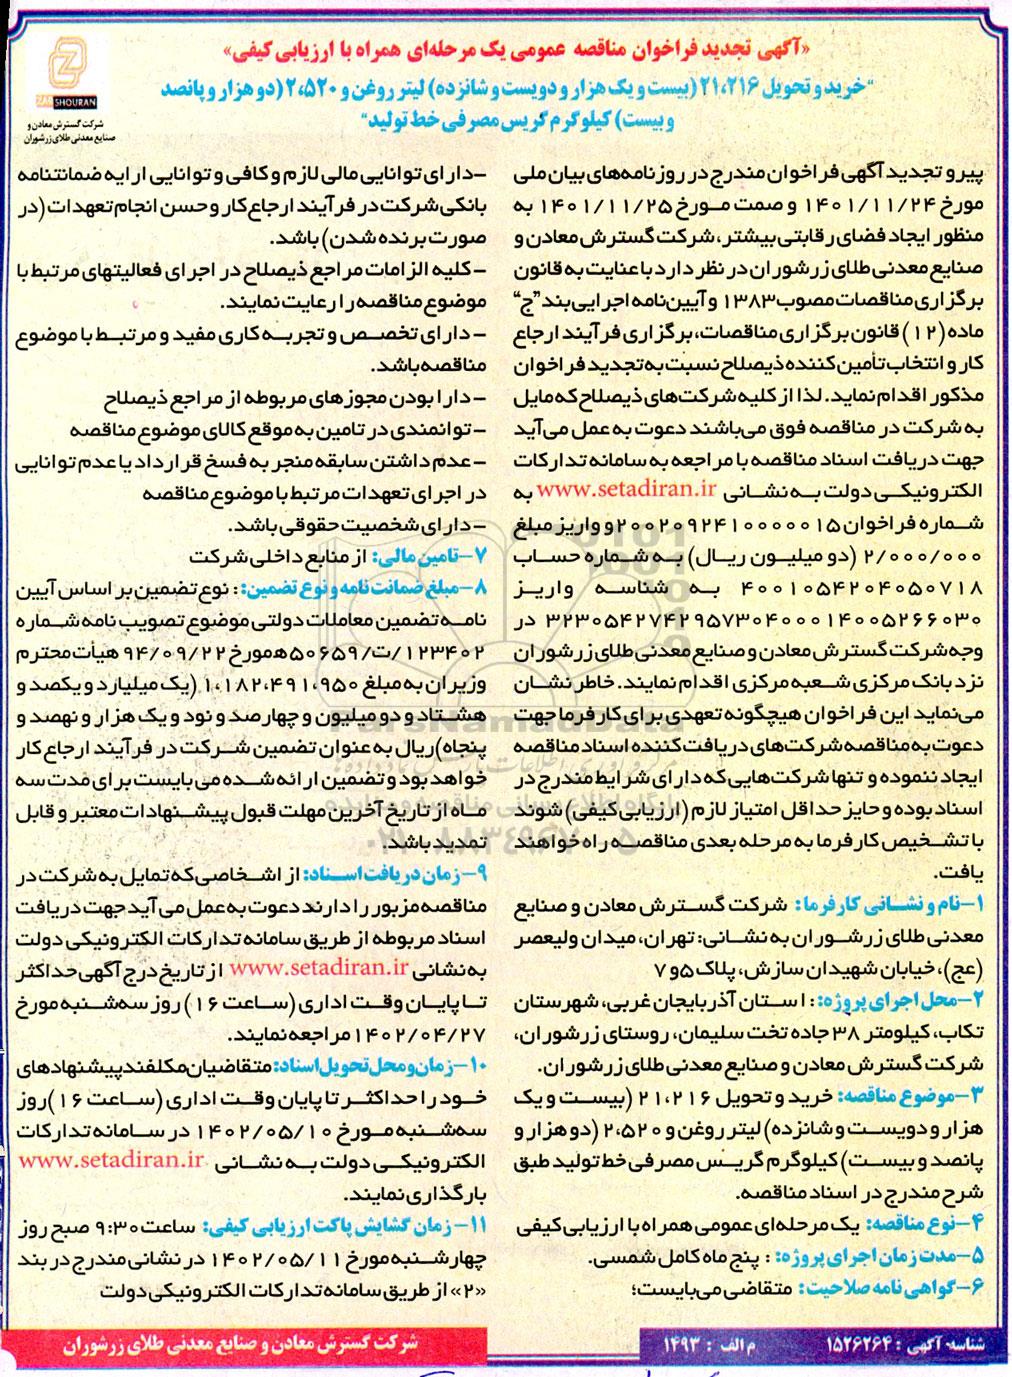 «آگهی تجدید فراخوان مناقصه عمومی یک مرحله‌ای همراه با ارزیابی کیفی»
"خرید و تحویل ۲۱،۲۱۶ (بیست و یک هزار و دویست و شانزده) لیتر روغن و ۲،۵۲۰ (دو هزار و پانصد
و بیست) کیلوگرم گریس مصرفی خط تولید"
ZARSHOURAN
شرکت گسترش معادن و
صنایع معدنی طلای زرشوران
پیرو تجدید آگهی فراخوان مندرج در روزنامه‌های بیان ملی
مورخ ۱۴۰۱/۱۱/۲۴ و صمت مورخ ۱۴۰۱/۱۱/۲۵ به
منظور ایجاد فضای رقابتی بیشتر، شرکت گسترش معادن و
صنایع معدنی طلای زرشوران در نظر دارد با عنایت به قانون
برگزاری مناقصات مصوب ۱۳۸۳ و آیین‌نامه اجرایی بند "ج"
ماده (۱۲) قانون برگزاری مناقصات، برگزاری فرآیند ارجاع
کار و انتخاب تأمین‌کننده ذیصلاح نسبت به تجدید فراخوان
مذکور اقدام نماید. لذا از کلیه شرکت‌های ذیصلاح که مایل
به شرکت در مناقصه فوق می‌باشند دعوت به عمل می‌آید
جهت دریافت اسناد مناقصه با مراجعه به سامانه تدارکات
الکترونیکی دولت به نشانی www.setadiran.ir به
شماره فراخوان ۲۰۰۲۰۹۲۴۱۰۰۰۰۰۱۵ و واریز مبلغ
۲/۰۰۰/۰۰۰ (دو میلیون ریال) به شماره حساب
۴۰۰۱۰۵۴۲۰۴۰۵۰۷۱۸ به شناسه واریز
۳۲۳۰۵۴۲۷۴۲۹۵۷۳۰۴۰۰۰۱۴۰۰۵۲۶۶۰۳۰ در
وجه شرکت گسترش معادن و صنایع معدنی طلای زرشوران
نزد بانک مرکزی شعبه مرکزی اقدام نمایند. خاطر نشان
می‌نماید این فراخوان هیچگونه تعهدی برای کارفرما جهت
دعوت به مناقصه شرکت‌های دریافت‌کننده اسناد مناقصه
ایجاد ننموده و تنها شرکت‌هایی که دارای شرایط مندرج در
اسناد بوده و حایز حداقل امتیاز لازم (ارزیابی کیفی) شوند
با تشخیص کارفرما به مرحله بعدی مناقصه راه خواهند
یافت.
۱-نام و نشانی کارفرما: شرکت گسترش معادن و صنایع
معدنی طلای زرشوران به نشانی: تهران، میدان ولیعصر
(عج)، خیابان شهیدان سازش، پلاک ۵ و ۷
۲-محل اجرای پروژه: : استان آذربایجان غربی، شهرستان
تکاب، کیلومتر ۳۸ جاده تخت سلیمان، روستای زرشوران،
شرکت گسترش معادن و صنایع معدنی طلای زرشوران.
۳-موضوع مناقصه: خرید و تحویل ۲۱،۲۱۶ (بیست و یک
هزار و دویست و شانزده) لیتر روغن و ۲،۵۲۰ (دو هزار و
پانصد و بیست) کیلوگرم گریس مصرفی خط تولید طبق
شرح مندرج در اسناد مناقصه.
۴-نوع مناقصه: یک مرحله‌ای عمومی همراه با ارزیابی کیفی
۵-مدت زمان اجرای پروژه: : پنج ماه کامل شمسی.
۶-گواهی نامه صلاحیت: متقاضی می‌بایست؛
-دارای توانایی مالی لازم و کافی و توانایی ارایه ضمانتنامه
بانکی شرکت در فرآیند ارجاع کار و حسن انجام تعهدات (در
صورت برنده شدن) باشد.
-کلیه الزامات مراجع ذیصلاح در اجرای فعالیتهای مرتبط با
موضوع مناقصه را رعایت نمایند.
-دارای تخصص و تجربه کاری مفید و مرتبط با موضوع
مناقصه باشد.
-دارا بودن مجوزهای مربوطه از مراجع ذیصلاح
-توانمندی در تامین به موقع کالای موضوع مناقصه
-عدم داشتن سابقه منجر به فسخ قرارداد یا عدم توانایی
در اجرای تعهدات مرتبط با موضوع مناقصه
-دارای شخصیت حقوقی باشد.
۷-تامین مالی: از منابع داخلی شرکت
۸-مبلغ ضمانت نامه و نوع تضمین: : نوع تضمین بر اساس آیین
نامه تضمین معاملات دولتی موضوع تصویب نامه شماره
۱۲۳۴۰۲/ت/۵۰۶۵۹ه مورخ ۹۴/۰۹/۲۲ هیأت محترم
وزیران به مبلغ ۱,۱۸۲,۴۹۱,۹۵۰ (یک میلیارد و یکصد و
هشتاد و دو میلیون و چهارصد و نود و یک هزار و نهصد و
پنجاه) ریال به عنوان تضمین شرکت در فرآیند ارجاع کار
خواهد بود و تضمین ارائه شده می بایست برای مدت سه
ماه از تاریخ آخرین مهلت قبول پیشنهادات معتبر و قابل
تمدید باشد.
۹-زمان دریافت اسناد: از اشخاصی که تمایل به شرکت در
مناقصه مزبور را دارند دعوت به عمل می آید جهت دریافت
اسناد مربوطه از طریق سامانه تدارکات الکترونیکی دولت
به نشانی www.setadiran.ir از تاریخ درج آگهی حداکثر
تا پایان وقت اداری (ساعت ۱۶) روز سه‌شنبه مورخ
۱۴۰۲/۰۴/۲۷ مراجعه نمایند.
۱۰-زمان و محل تحویل اسناد: متقاضیان مکلفند پیشنهادهای
خود را حداکثر تا پایان وقت اداری (ساعت ۱۶) روز
سه‌شنبه مورخ ۱۴۰۲/۰۵/۱۰ در سامانه تدارکات
الکترونیکی دولت به نشانی www.setadiran.ir
بارگذاری نمایند.
۱۱- زمان گشایش پاکت ارزیابی کیفی: ساعت ۹:۳۰ صبح روز
چهارشنبه مورخ ۱۴۰۲/۰۵/۱۱ در نشانی مندرج در بند
«۲» از طریق سامانه تدارکات الکترونیکی دولت
ParsNamadData
۰۲۱-۸۸۳۴۹۶۷۰-۵
شناسه آگهی : ۱۵۲۶۲۶۴
م الف : ۱۴۹۳
شرکت گسترش معادن و صنایع معدنی طلای زرشوران